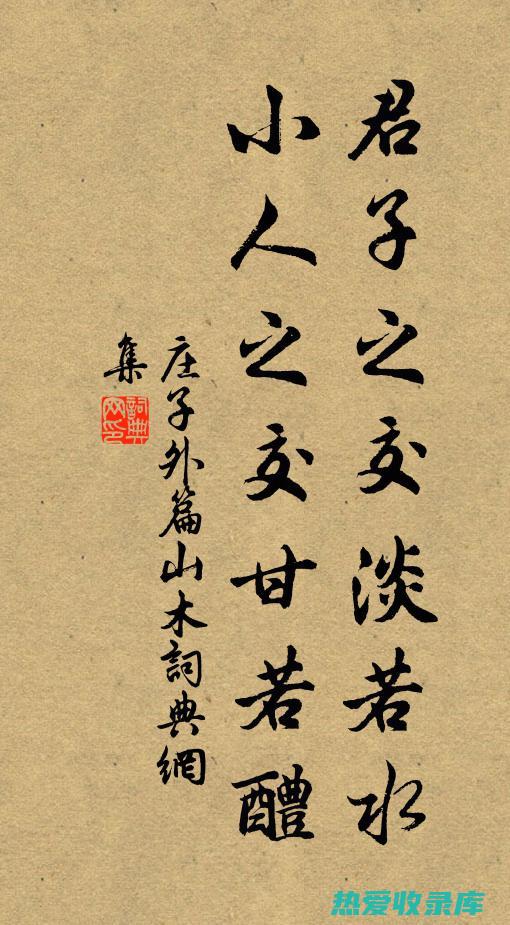 君子之交淡若水
小人之交甘若醴
庄子外篇山木詞典網
集
詞典
网印
热爱收录库